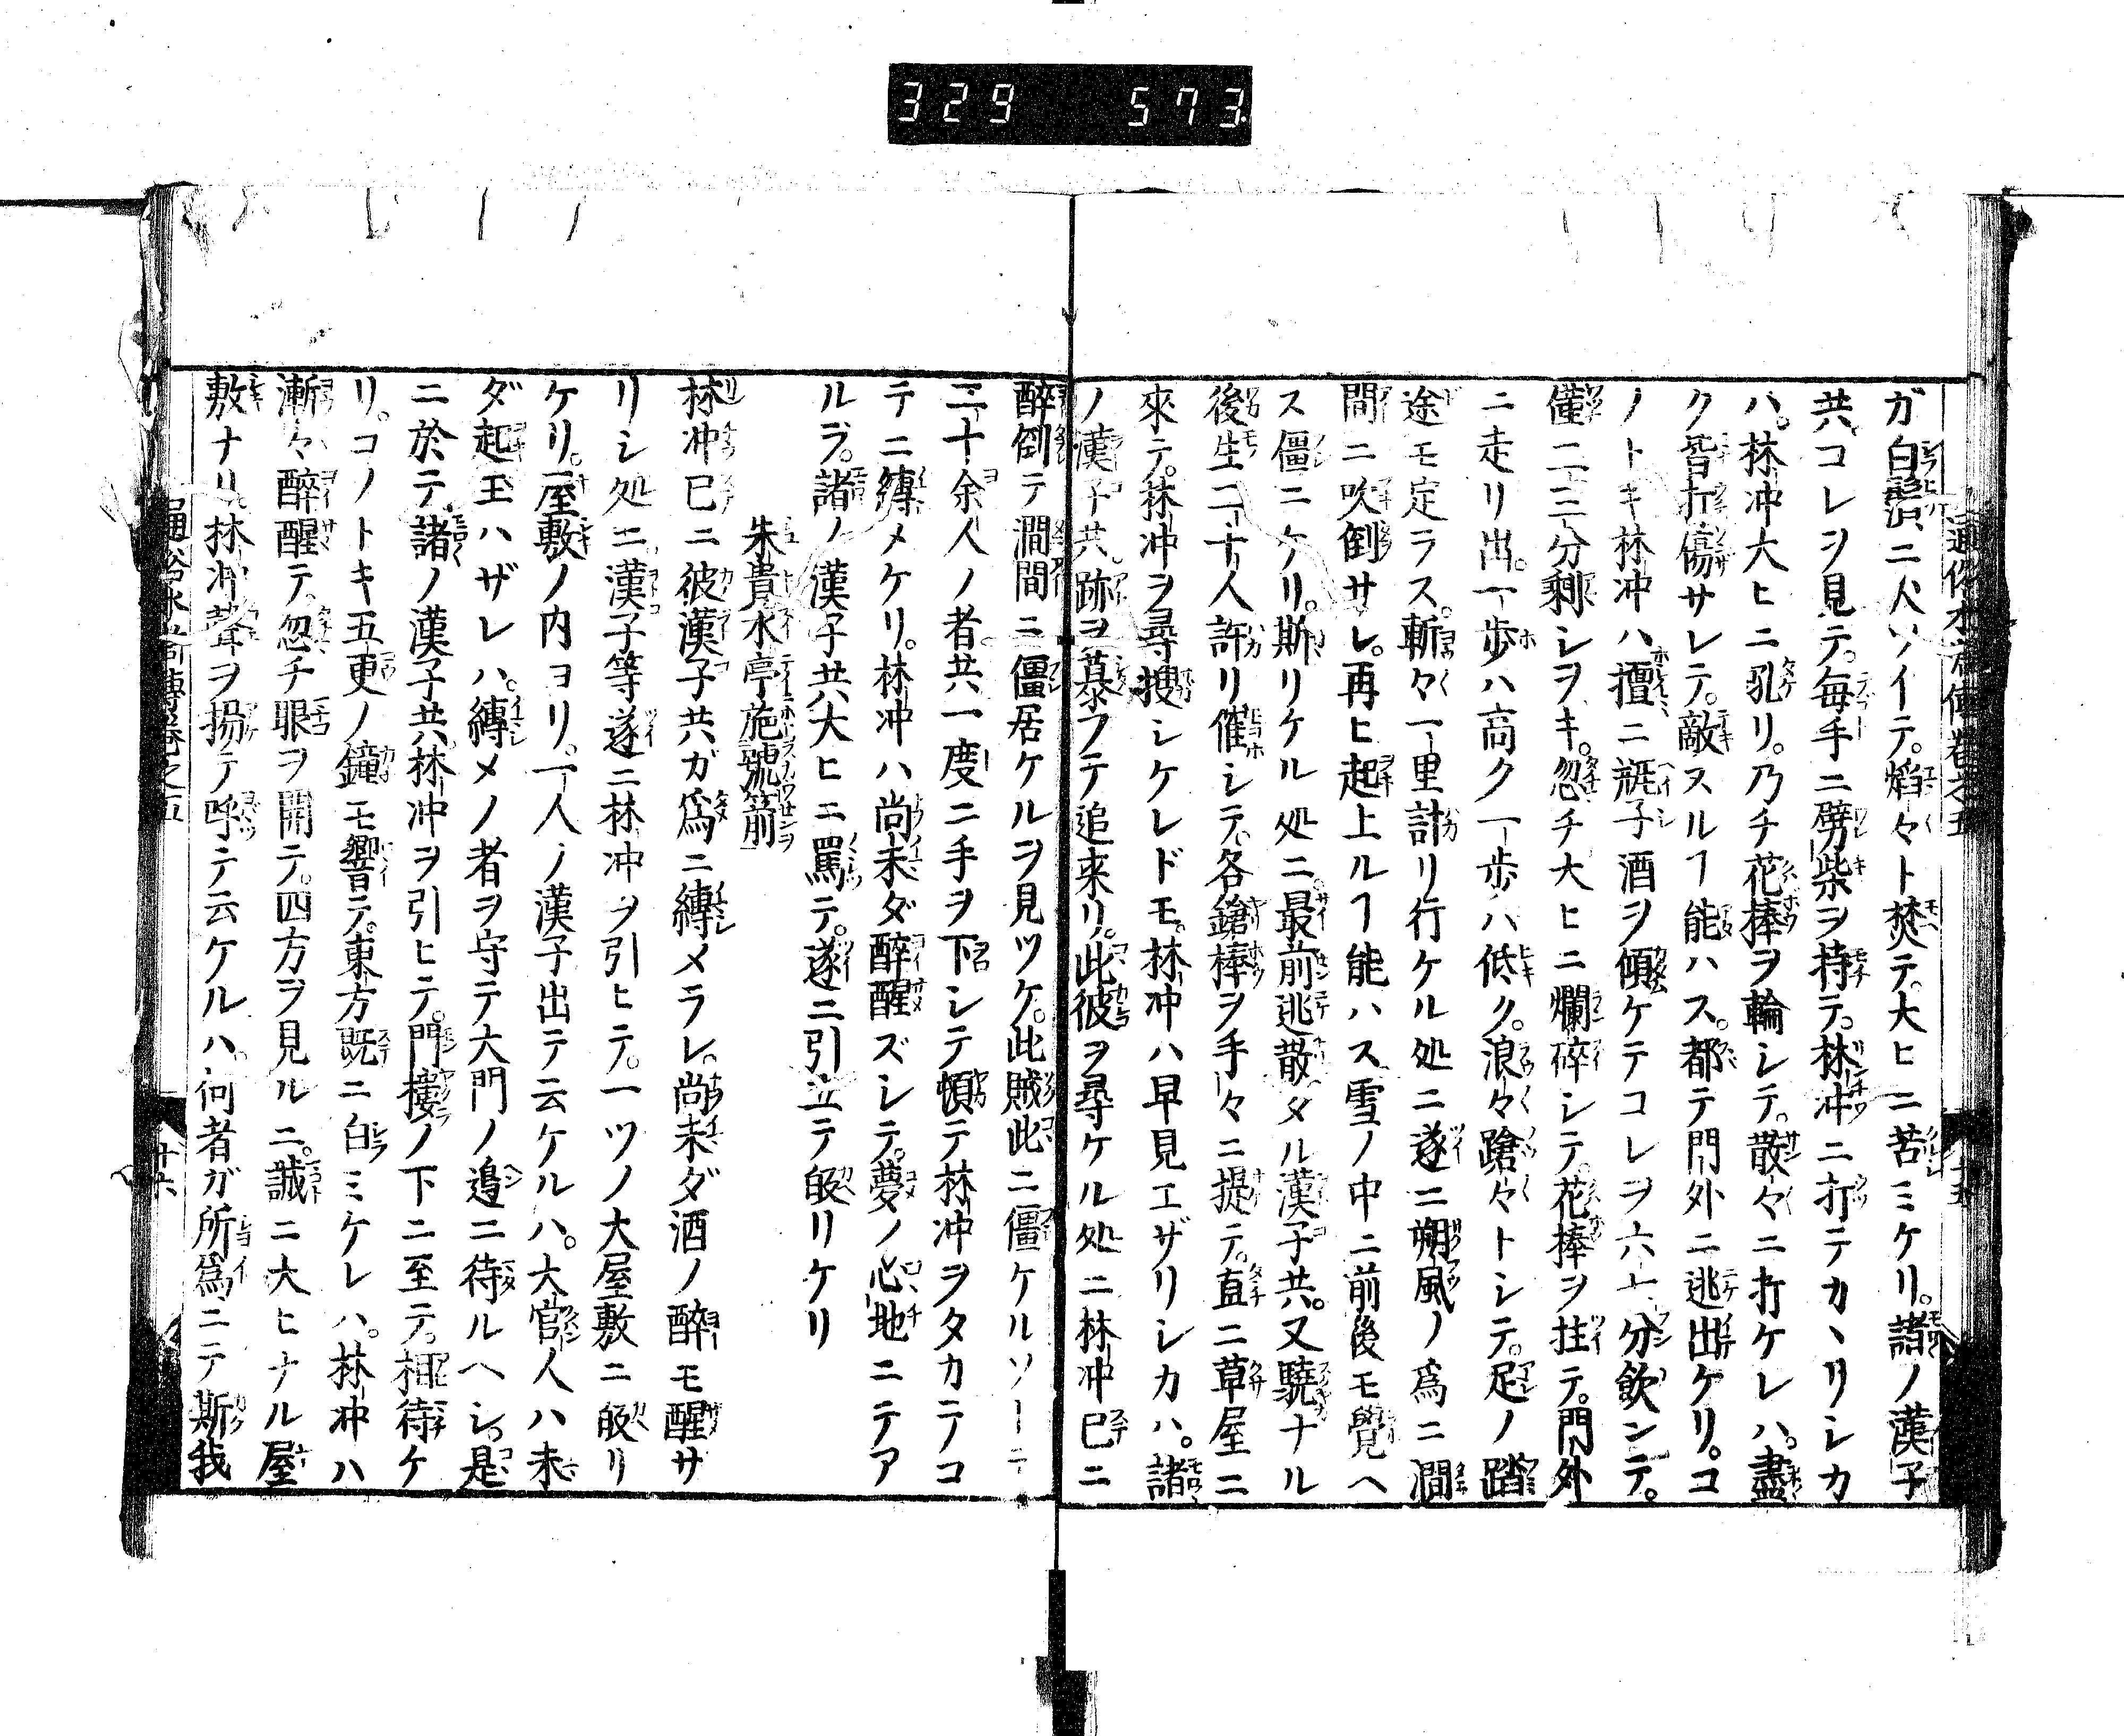 329 573
ガ白鬚ニ火ソイテ。焰々ト焚テ。大ヒニ苦ミケリ。諸ノ漢子
共。コレヲ見テ。毎手ニ劈柴ヲ持テ。林冲ニ打テカヽリシカ
ハ。林冲大ヒニ乳リ。乃チ花棒ヲ輪シテ。散々ニ打ケレハ。盡
ク皆打傷サレテ。敵スルヿ能ハス。都テ門外ニ逃出ケリ。コ
ノトキ林冲ハ擅ニ瓶子酒ヲ傾ケテコレヲ六七分飲ンテ。
僅二三分剰シヲキ。忽チ大ヒニ爛碎シテ。花棒ヲ拄テ。門外
ニ走リ出。一歩ハ高ク一歩ハ低ク。浪々蹌々トシテ。足ノ踏
途モ定ラス。斬々一里計リ行ケル処ニ遂ニ朔風ノ爲ニ澗
間ニ吹倒サレ。再ヒ起上ルヿ能ハス雪ノ中ニ前後モ覺ヘ
ス僵ニケリ。斯リケル処ニ最前逃散タル漢子共。又驍ナル
後生二十人許リ催シテ。各鎗棒ヲ手々ニ提テ。直ニ草屋ニ
來テ。林冲ヲ尋搜シケレドモ。林冲ハ早見エザリシカハ。諸
ノ漢子共。跡ヲ慕フテ追来リ。此彼ヲ尋ケル処ニ林冲已ニ
醉倒テ澗間ニ僵居ケルヲ見ツケ。此賊此ニ僵ケルソーテ
二十余人ノ者共一度ニ手ヲ下シテ頓テ林冲ヲタカテコ
テニ縛メケリ。林冲ハ尚未ダ醉醒ズシテ。夢ノ心地ニテア
ルヲ。諸ノ漢子共大ヒニ罵テ。遂ニ引立テ皈リケリ
朱貴水亭施號箭
林冲已ニ彼漢子共ガ爲ニ縛メラレ。尚未ダ酒ノ醉モ醒サ
リシ処ニ漢子等遂ニ林冲ヲ引ヒテ。一ツノ大屋敷ニ皈リ
ケリ。屋敷ノ内ヨリ。一人ノ漢子出テ云ケルハ。大官人ハ未
ダ起玉ハザレハ。縛メノ者ヲ守テ大門ノ邉ニ待ルヘシ。是
ニ於テ諸ノ漢子共。林冲ヲ引ヒテ。門樓ノ下ニ至テ。相待ケ
リ。コノトキ五更ノ鐘モ響テ。東方既ニ白ミケレハ。林冲ハ
漸々醉醒テ。忽チ眼ヲ開テ。四方ヲ見ルニ。誠ニ大ヒナル屋
敷ナリ。林冲聲ヲ揚テ呼テ云ケルハ。何者ガ所爲ニテ斯我
通俗水滸傳卷之五
廿六